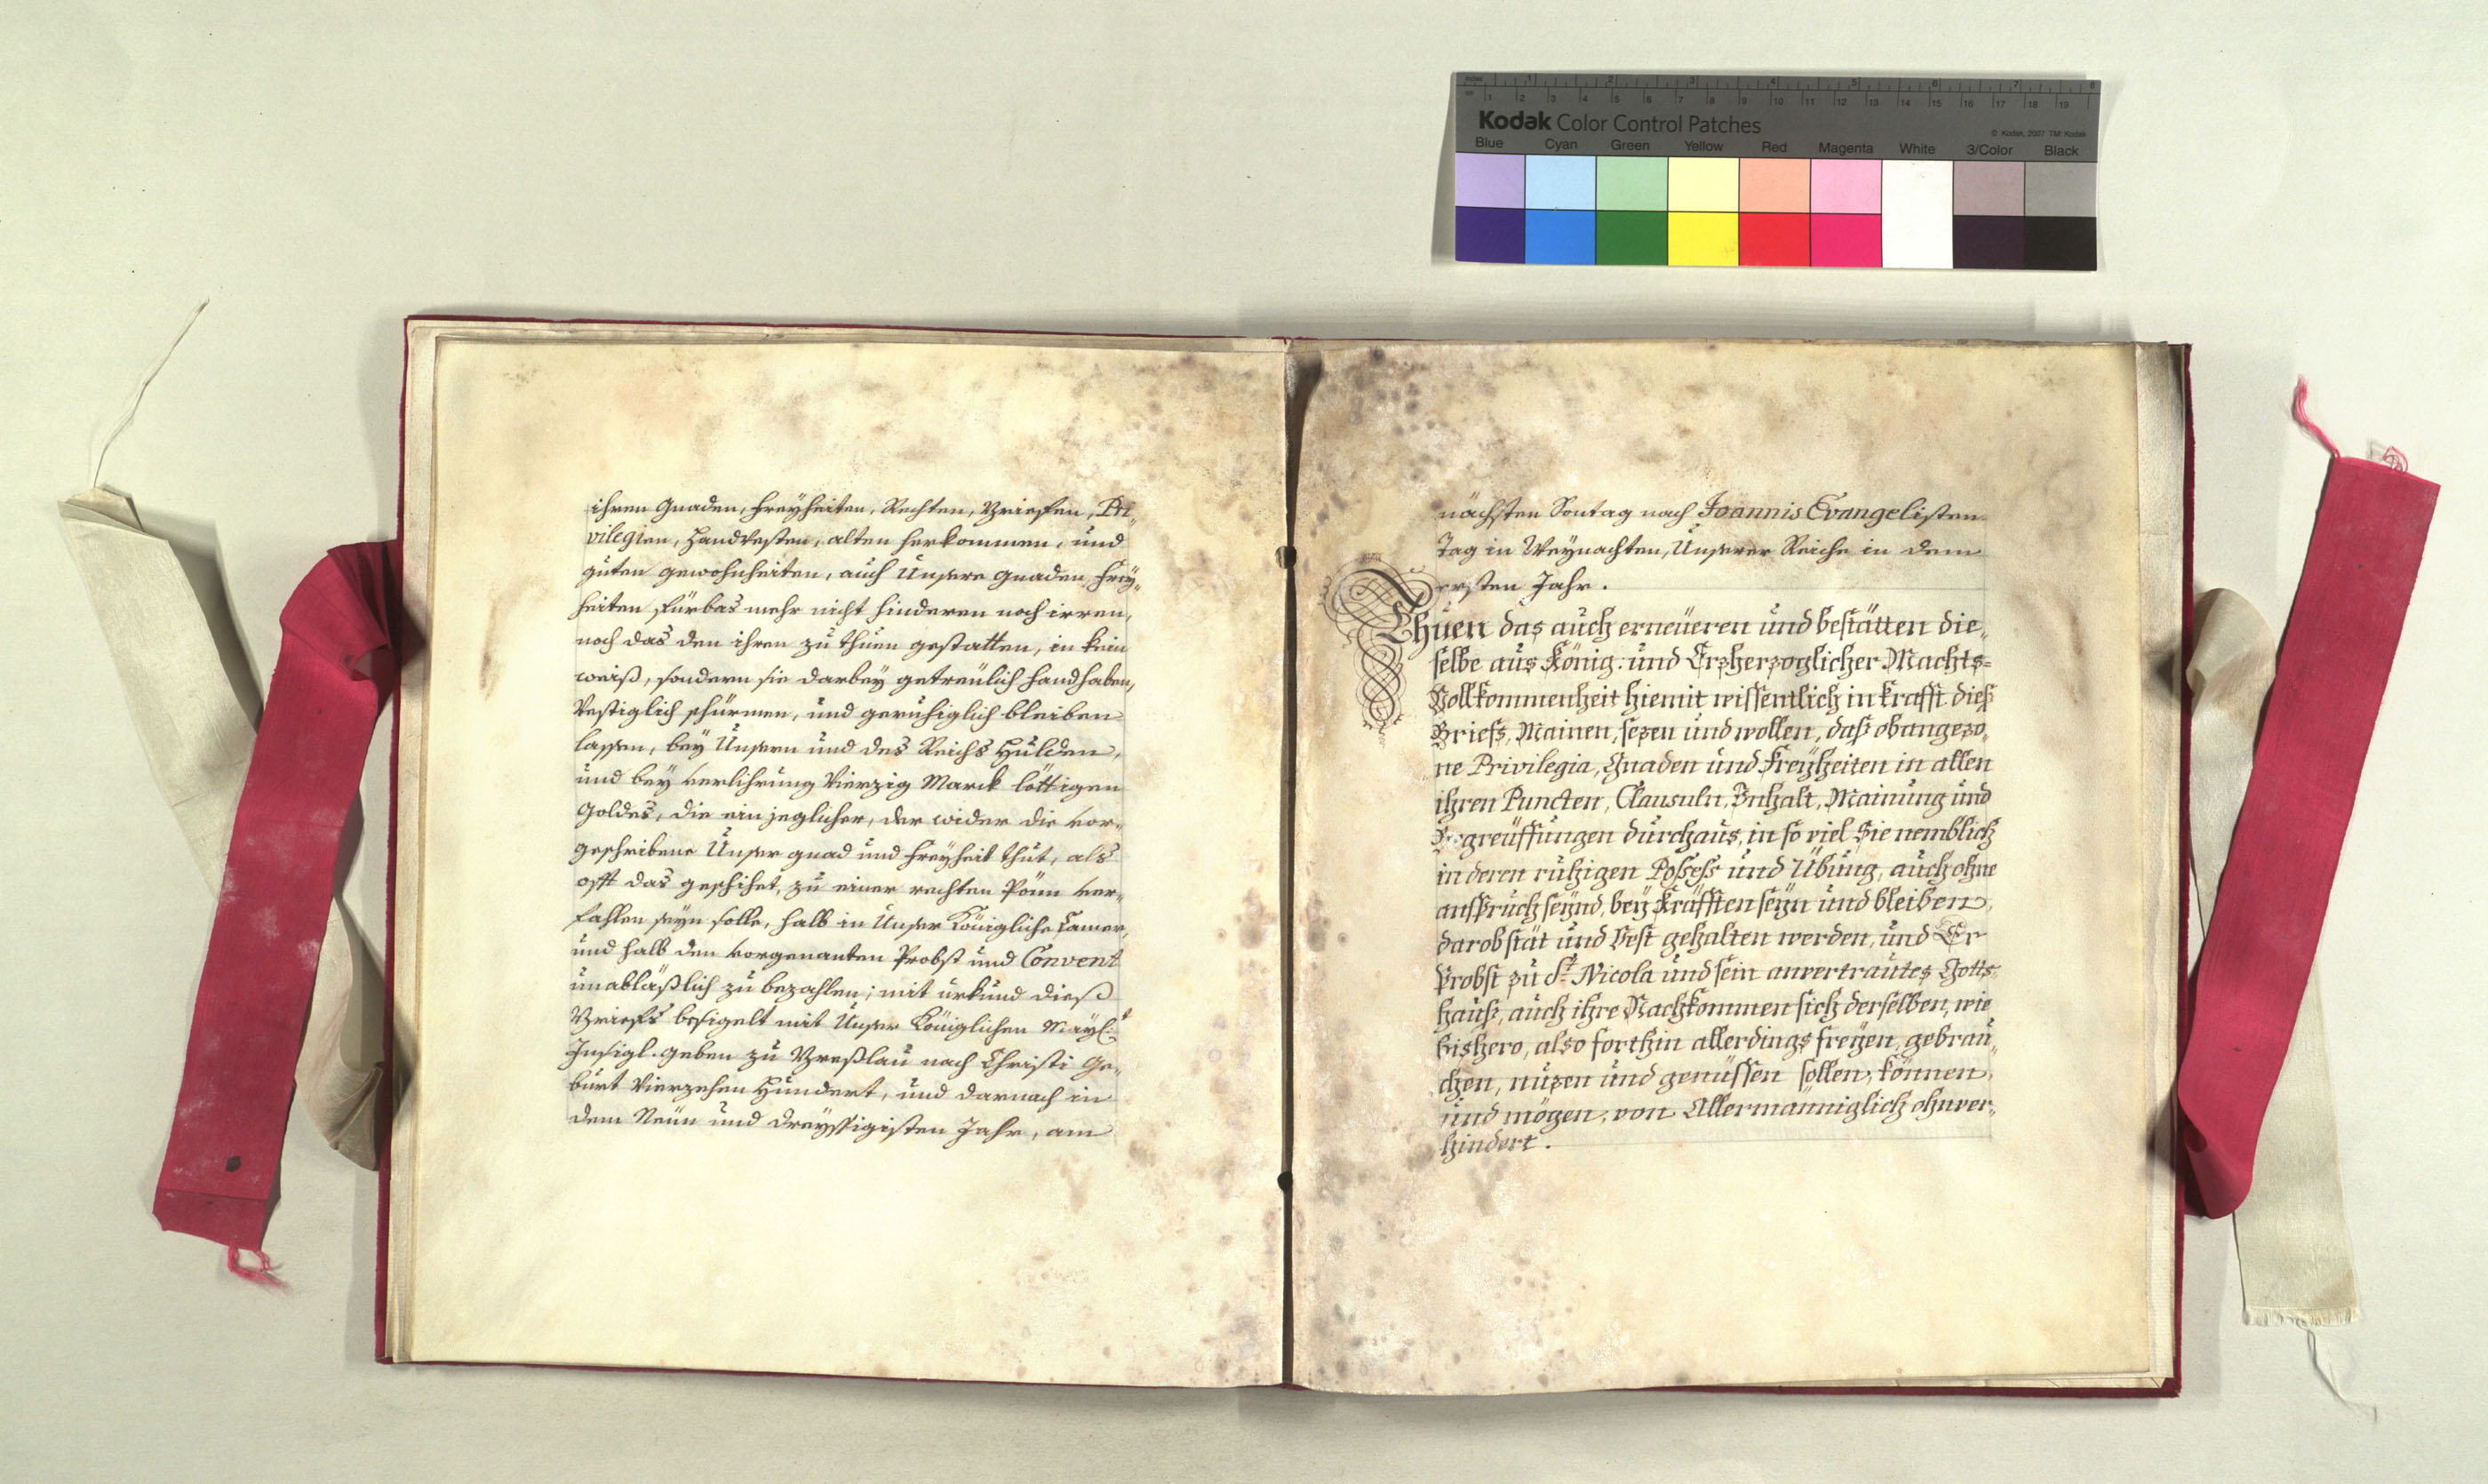 Kodak Color Control Patches
© Kodak, 2007 TM: Kodak
Blue Cyan Green Yellow Red Magenta White 3/Color Black
ihren Gnaden, Freyheiten, Rechten, Brieffen, Pri„
vilegien, Handvesten, alten herkommen, und
guten gewohnheiten, auch Unsere gnaden Frey„
heiten fürbas mehr nicht hinderen noch irren,
noch das den ihren zu thuen gestatten, in kein
weiß, sondern sie darbey getreulich handhaben,
Vestiglich schürmen, und geruhiglich bleiben
lassen, bey Unsern und des Reichs Hulden,
und bey verlihrung Vierzig Marck löttigen
Goldes, die ein jeglicher, der wider die vor„
geschribene Unser gnad und Freyheit thut, als
offt das geschihet, zu einer rechten Pönn ver„
fahlen seyn solle, halb in Unser Königliche Camer,
und halb den vorgenanten Probst und Convent
unabläßlich zu bezahlen; mit urkund dieß
Brieffs besigelt mit Unser Königlichen Mayl:t
Insigl. geben zu Breßlau nach Christi Ge„
burt Vierzehen Hundert, und darnach in
dem Neun und dreyssigisten Jahr, am
nächsten Sontag nach Joannis Evangelisten
Tag in Weynachten, Unserer Reiche in dem
ersten Jahr.
Thuen das auch erneueren und bestätten die„
selbe aus König: und Erzherzoglicher Machts=
Vollkommenheit hiemit wissentlich in krafft dieß
Briefs, Mainen, sezen und wollen, daß obangezo„
ne Privilegia, Gnaden und Freyheiten in allen
ihren Puncten, Clausuln, Inhalt, Mainung und
Begreuffungen durchaus, in so viel Sie nemblich
in deren ruhigen Posseß und Übung, auch ohne
anspruch seynd, bey Kräfften seyn und bleiben,
darob stät und Vest gehalten werden, und Er
Probst zu St. Nicola und sein anvertrautes Gotts„
hauß, auch ihre Nachkommen sich derselben, wie
bishero, also forthin allerdings freyen, gebrau„
chen, nuzen und genüssen sollen, können,
und mögen, von Allermänniglich ohnver„
hindert.